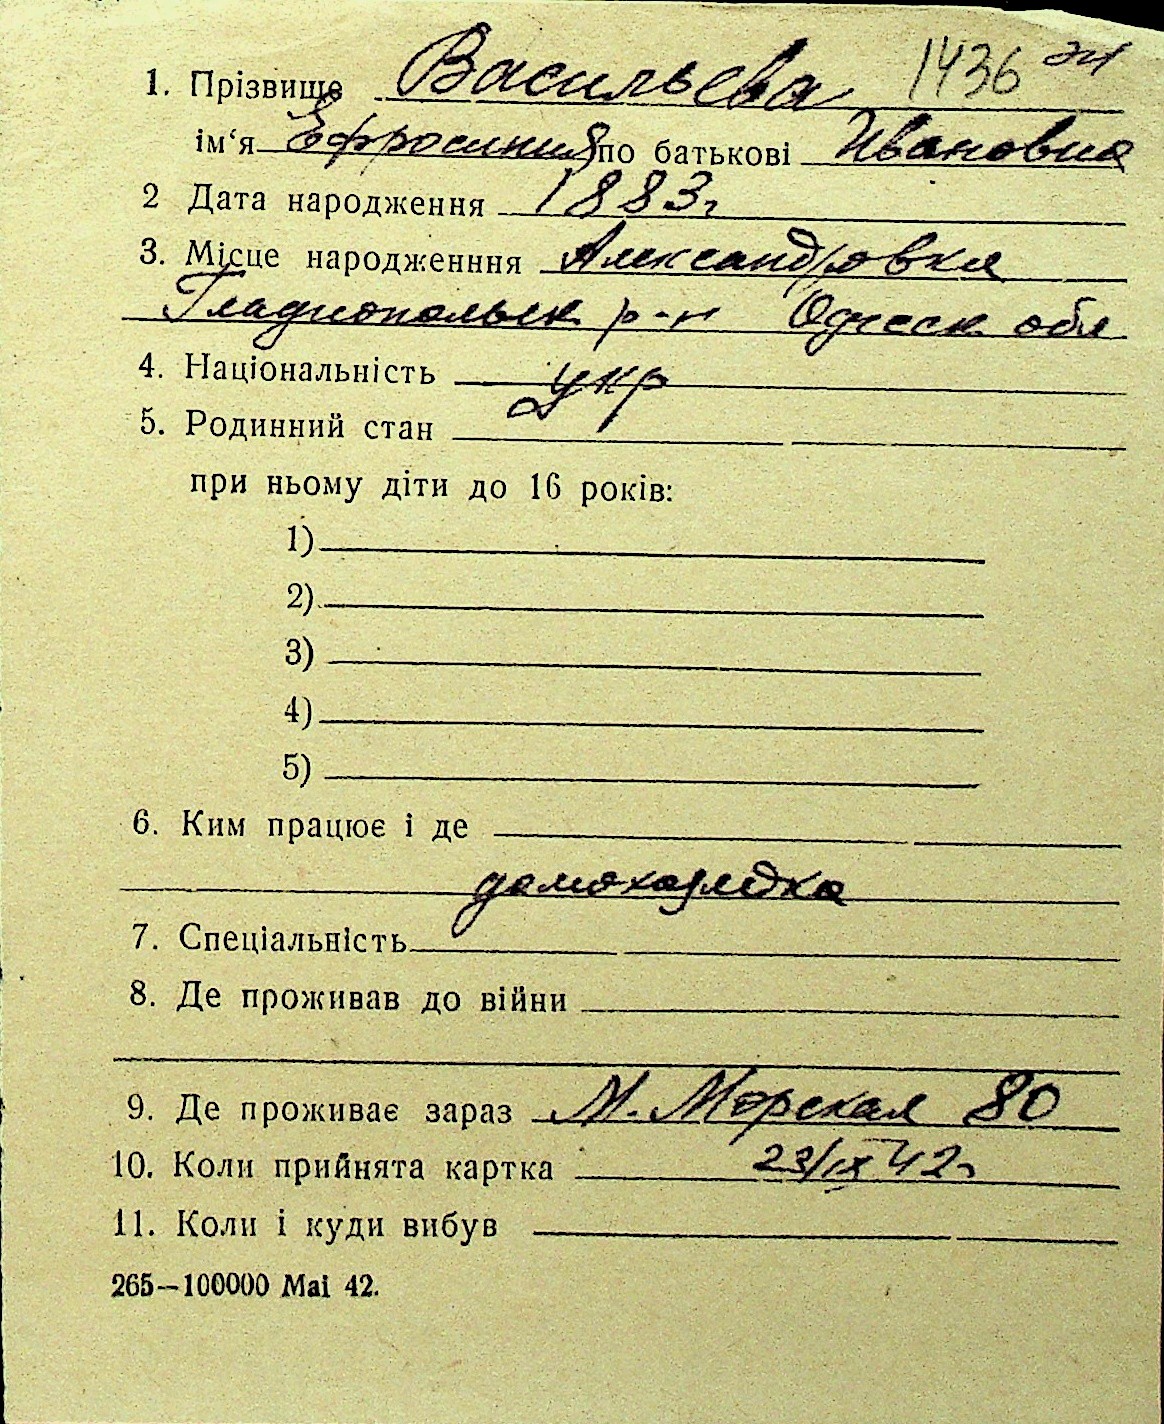 1. Прізвище Васильева 1436
ім‘я Ефросиния по батькові Ивановна
2 Дата народження 1883г
3. Місце народженння Александровка
Гладиопольск р-н Одесск обл
4. Національність укр
5. Родинний стан
при ньому діти до 16 років:
1)
2)
3)
4)
5)
6. Ким працює і де
домохазяйка
7. Спеціальність
8. Де проживав до війни
9. Де проживає зараз М. Морская 80
10. Коли прийнята картка 23/IX 42г
11. Коли і куди вибув
265—100000 Mai 42.